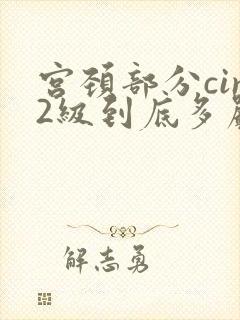 宫颈部分cin
2級到底多
解志勇